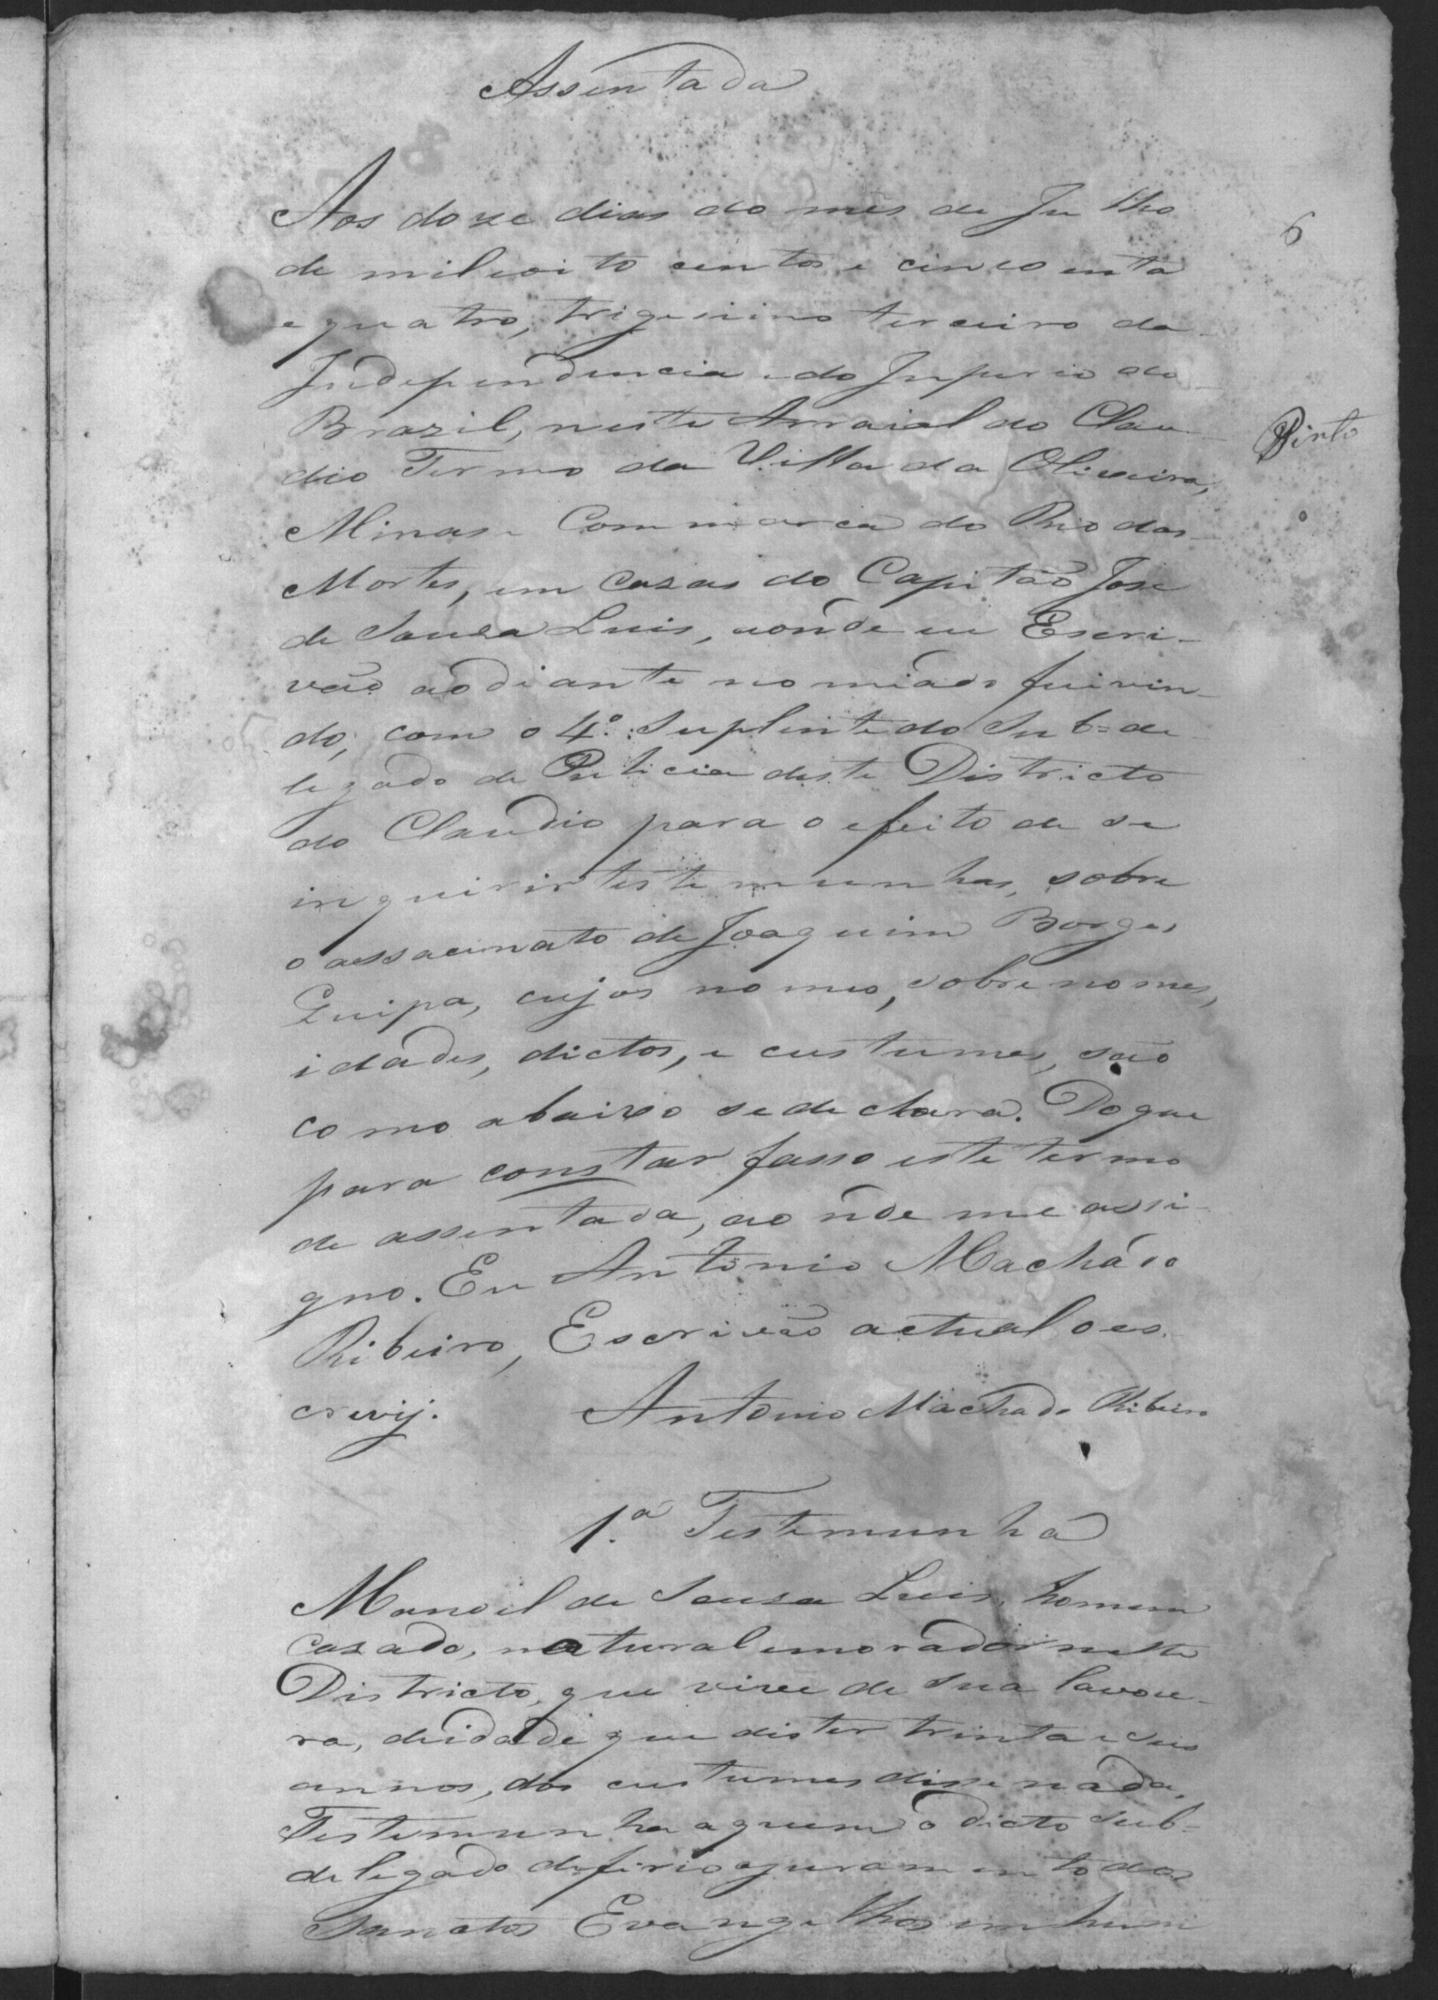 Assentada
Aos doze dias do mes de Julho
6
de mil e oito centos e cincoenta
e quatro, trigesimo terceiro da
Independencia e do Imperio do
Brazil, neste Arraial do Clau-
Pinto
dio Termo da Villa da Oliveira,
Minas e Commarca do Rio das
Mortes, em cazas do Capitão Jose
de Sousa Luis, aonde eu Escri-
vão ao diante nomiado fui vin-
do, com o 4º Suplente do Sub-de
legado de Pulicia deste Districto
do Claudio para o efeito de se
inquirir testemunhas, sobre
o assacinato de Joaquim Borges
Quipa, cujos nomes, sobrenomes,
idades, dictos, e custumes, são
como abaixo se declara. Do que
para constar fasso este termo
de assentada, ao nde me assi-
gno. Eu Antonio Machado
Ribeiro, Escrivão actual o es-
crevij. Antonio Machado Ribeiro
1.ª Testemunha
Manoel de Sousa Luis, homem
cazado, natural e morador neste
Districto, que vive de sua lavou-
ra, de idade que dis ter trinta e seis
annos, dos custumes disse nada,
Testemunha a quem o dicto Sub-
delegado deferio o juramento dos
Sanctos Evangelhos em hum